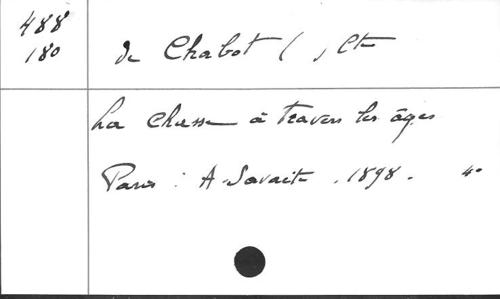 488
180
de Chabot ( , Cte
La Chasse à travers les âges
Paris : A. Savaite . 1898 . 4°